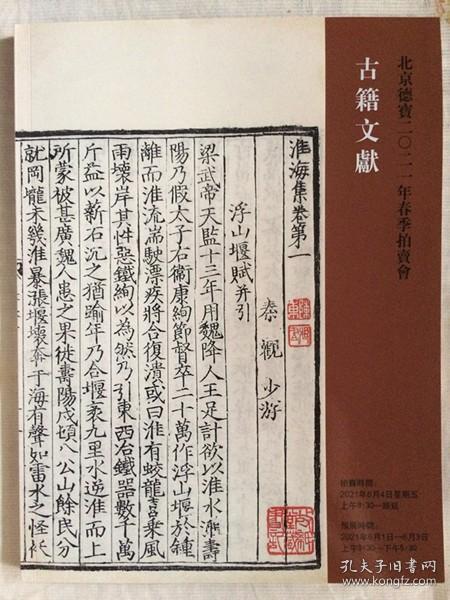 北京德寶二〇二一年春季拍賣會
古籍文獻
淮海集卷第一
秦觀少游
浮山堰賦并引
梁武帝天監十三年用魏降人王足計欲以淮水灌壽
陽乃假太子右衛康絢節督卒二十萬作浮山堰於鍾
離而淮流湍駛漂疾將合復潰或曰淮有蛟龍喜乘風
雨壞岸其性惡鐵絢以為然乃引東西冶鐵器數千萬
斤益以薪石沉之猶踰年乃合堰袤九里水逆淮而上
所蒙被甚廣魏人患之果徙壽陽戍頓八公山餘民分
就岡隴未幾淮暴漲堰壞奔于海有聲如雷水之怪妖
拍賣時間:
2021年6月4日星期五
上午9:30—
預展時間:
2021年6月1日—6月3日
上午9:30—下午5:30
孔夫子旧书网
www.kongfz.com